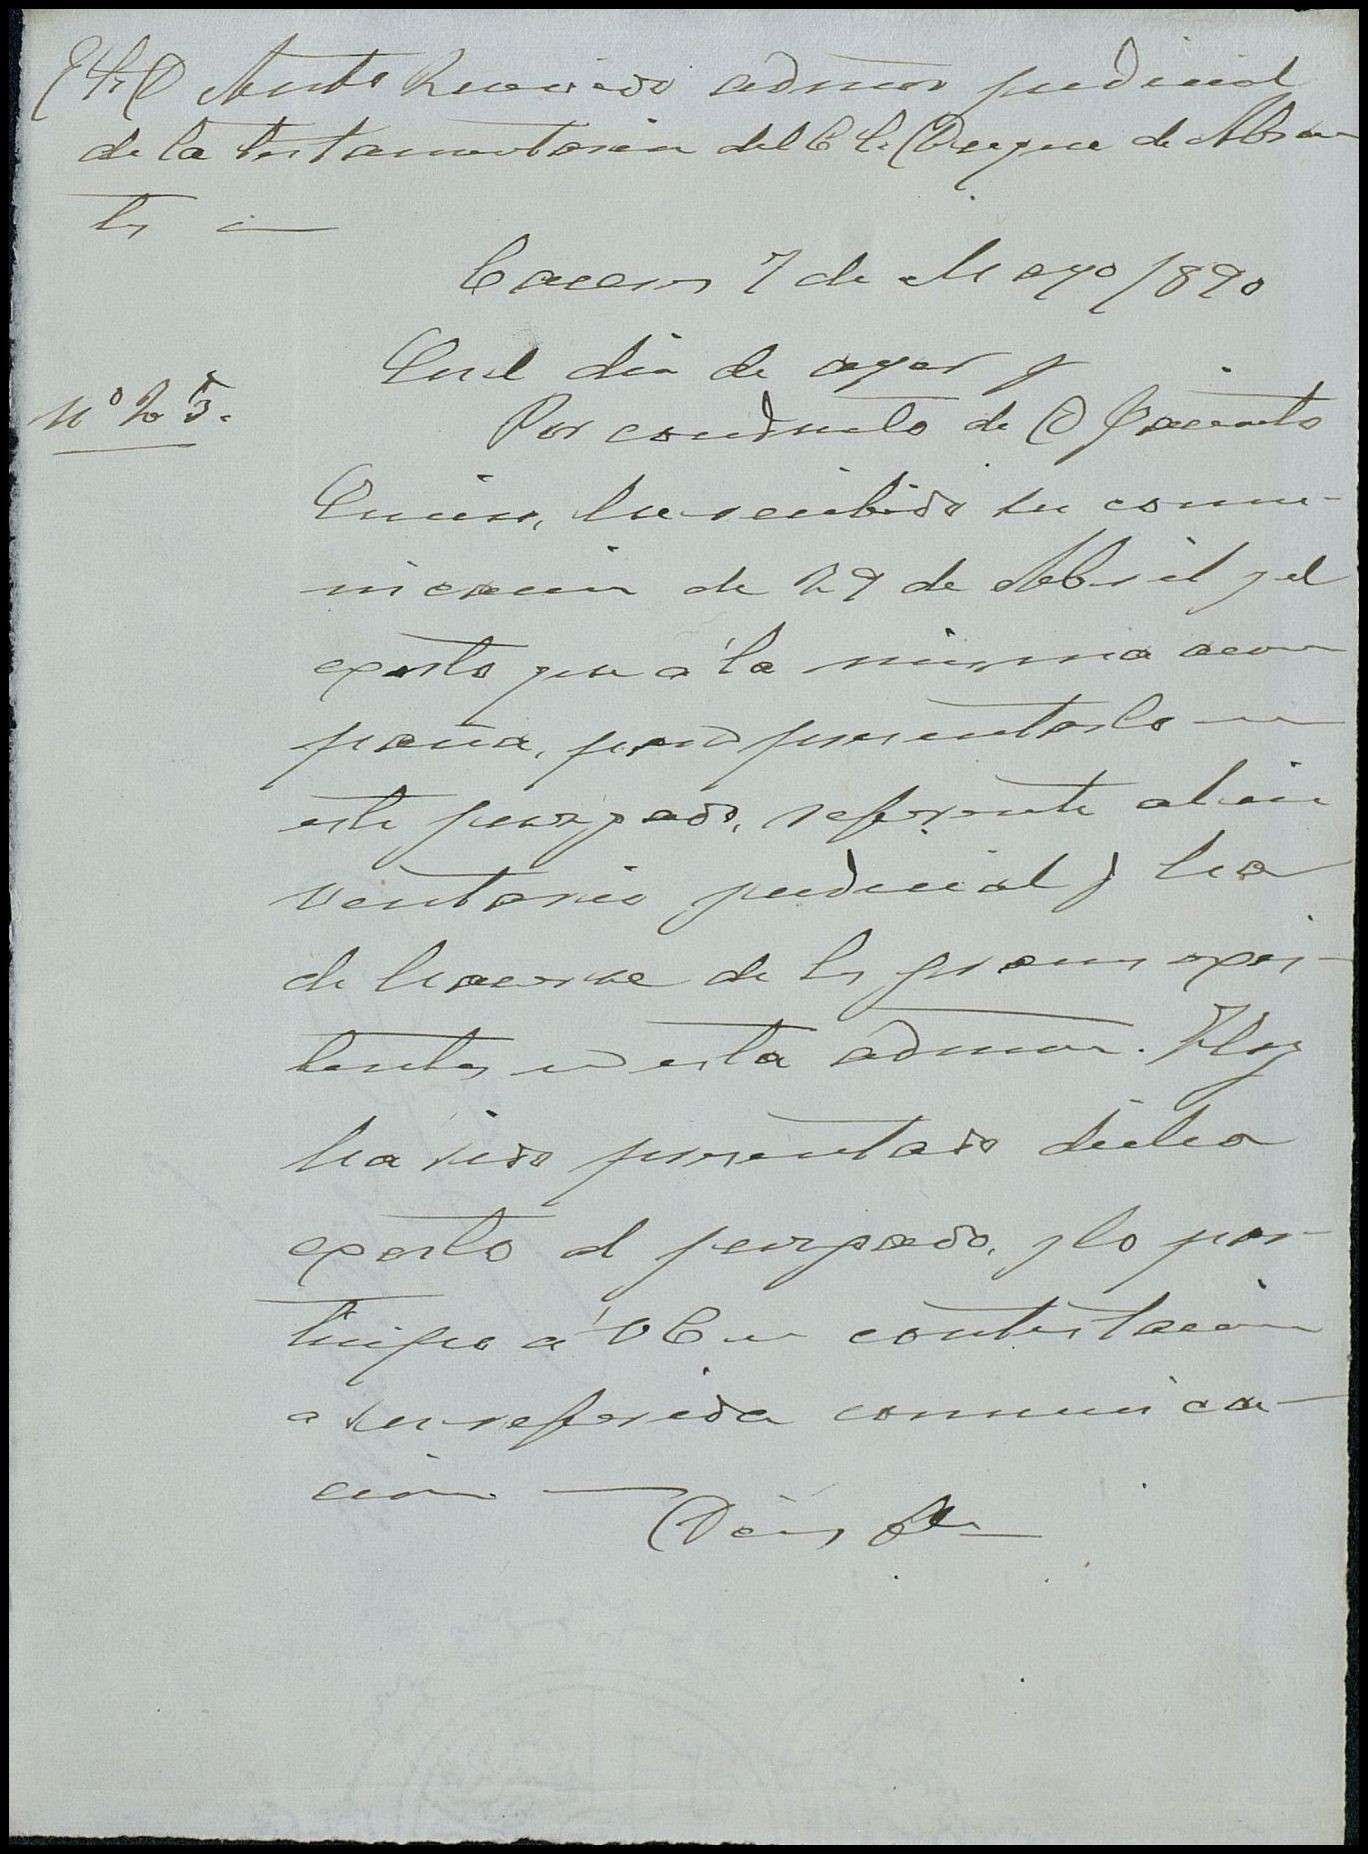 Sr. D Antº administr judicial
de la testamentaria del E. S. Duque de Abran
tes
Caceres 7 de Mayo 1890
En el dia de ayer y
Nº 25.
Por conducto de D Jacinto
he recibido su comu-
nicacion de 29 de Abril y el
exorto que á la misma acom
paña, para presentarlo en
este juzgado, referente al in
ventario judicial q ha
de hacerse de los granos exis-
tentes en esta admon. Hoy
ha sido presentado dicho
exorto al juzgado, y lo par-
ticipo á VE en contestacion
a su referida comunica-
cion
Dios &